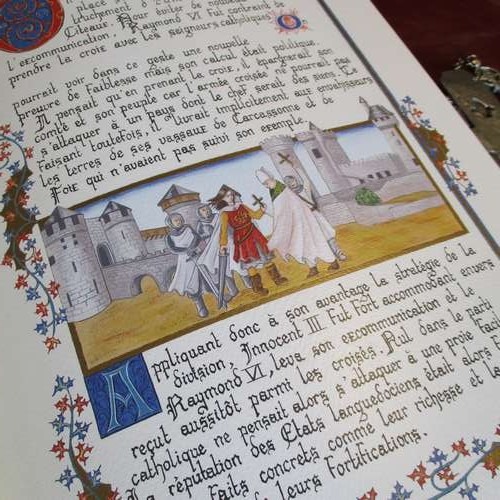 l'excommunication. Raymond VI fut contraint de
prendre la croix avec les seigneurs catholiques
pourrait voir dans ce geste une nouvelle
preuve de faiblesse mais son calcul était politique.
Il pensait qu'en prenant la croix, il épargnerait son
comté et son peuple car l'armée croisée ne pourrait pas
s'attaquer à un pays dont le chef serait des siens. Ce
faisant toutefois, il ouvrait implicitement aux envahisseurs
les terres de ses vassaux de Carcassonne et de
Foix qui n'avaient pas suivi son exemple.
Appliquant donc à son avantage la stratégie de la
division, Innocent III fut fort accommodant envers
Raymond VI, leva son excommunication et le
reçut aussitôt parmi les croisés. Nul dans le parti
catholique ne pensait alors s'attaquer à une proie
La réputation des Etats Languedociens était alors
faits concrets comme leur richesse et la
de leurs fortifications.